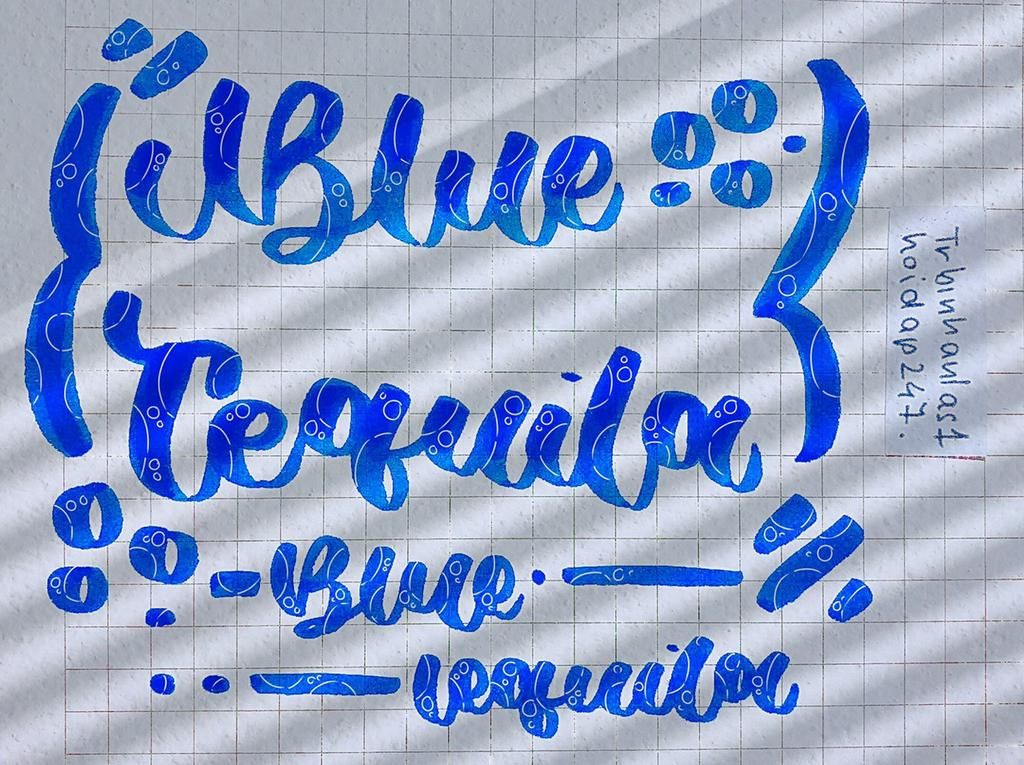 Blue
Tequila
Blue
Tequila
Trhinhanhas1
hoidap247.